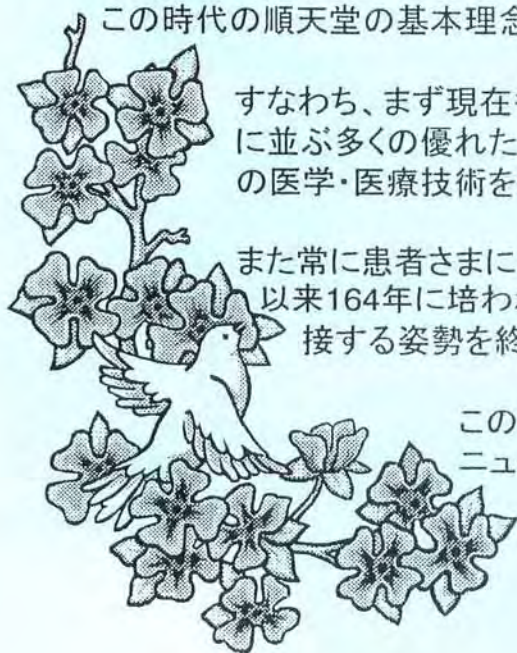 この時代の順天堂の基本理念
すなわち、まず現在
に並ぶ多くの優れた
の医学・医療技術を
また常に患者さまに
以来164年に培わ
接する姿勢を終
この
ニュ